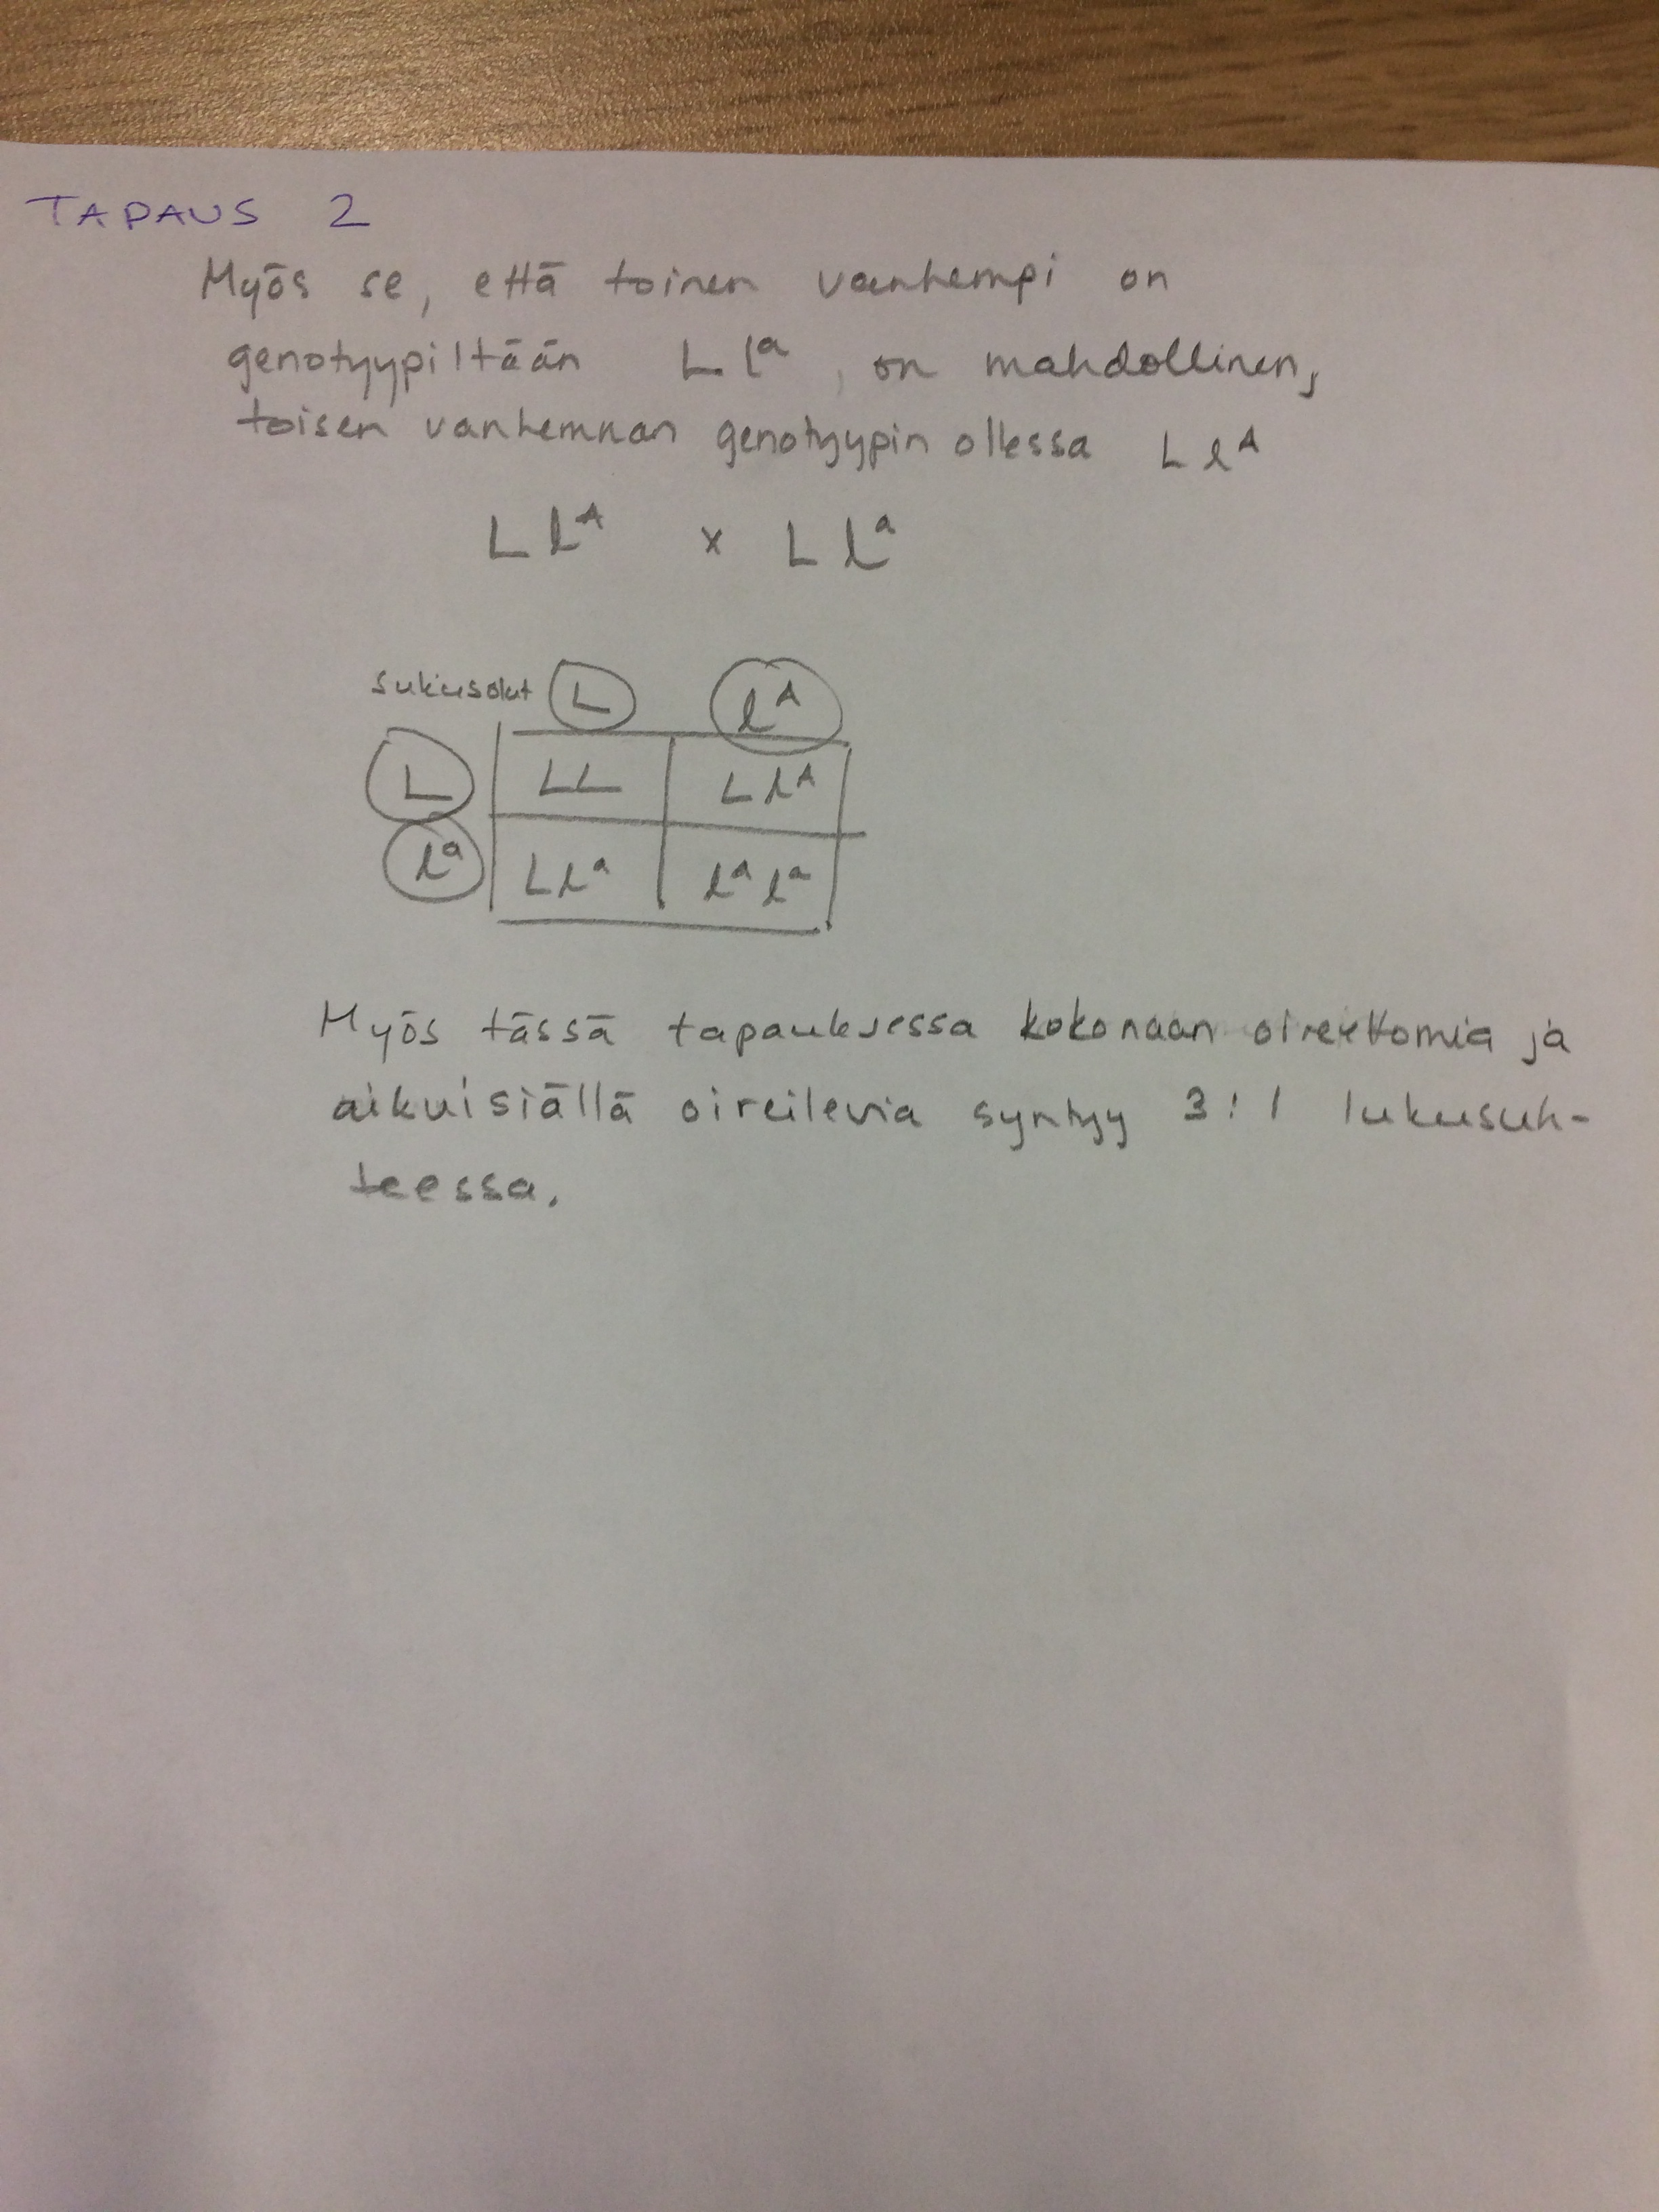 TAPAUS 2
Myös se, että toinen vanhempi on
genotyypiltään L lᵃ, on mahdollinen,
toisen vanhemman genotyypin ollessa L lᴬ
L lᴬ x L lᵃ
sukusolut L lᴬ
L LL L lᴬ
lᵃ L lᵃ lᵃ lᵃ
Myös tässä tapauksessa kokonaan oireettomia ja
aikuisiällä oireilevia syntyy 3:1 lukusuh-
teessa.